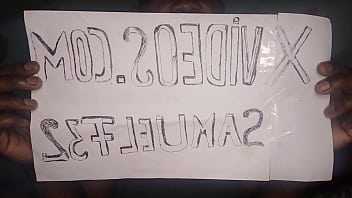 XVIDEOS.COM
SAMUELF32